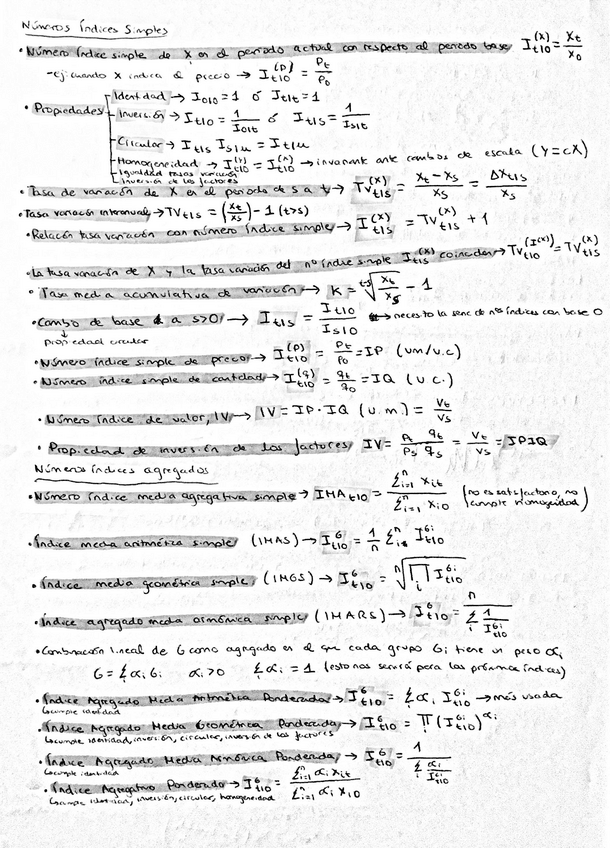 Números Índices Simples
• Número índice simple de X en el periodo actual con respecto al periodo base I_{t|0}^{(X)} = X_t / X_0
- ej: cuando X indica el precio → I_{t|0}^{(P)} = P_t / P_0
• Propiedades
Identidad → I_{0|0} = 1 ó I_{t|t} = 1
Inversión → I_{t|0} = 1 / I_{0|t} ó I_{t|s} = 1 / I_{s|t}
Circular → I_{t|s} I_{s|u} = I_{t|u}
Homogeneidad → I_{t|0}^{(Y)} = I_{t|0}^{(X)} → invariante ante cambios de escala (Y = cX)
Igualdad tasas variación
Inversión de los factores
• Tasa de variación de X en el periodo de s a t → TV_{t|s}^{(X)} = (X_t - X_s) / X_s = ΔX_{t|s} / X_s
• Tasa variación intranual → TV_{t|s} = (X_t / X_s) - 1 (t>s)
• Relación tasa variación con número índice simple → I_{t|s}^{(X)} = TV_{t|s}^{(X)} + 1
• La tasa variación de X y la tasa variación del nº índice simple I_{t|s}^{(X)} coinciden → TV_{t|0}^{(I^{(X)})} = TV_{t|s}^{(X)}
• Tasa media acumulativa de variación → K = \sqrt[t-s]{X_t / X_s} - 1
• Cambio de base a s>0 → I_{t|s} = I_{t|0} / I_{s|0} → necesito la serie de nº índices con base 0
↓
propiedad circular
• Número índice simple de precio → I_{t|0}^{(P)} = P_t / P_0 = IP (um/u.c)
• Número índice simple de cantidad → I_{t|0}^{(q)} = q_t / q_0 = IQ (u c.)
• Número índice de valor, IV → IV = IP · IQ (u.m) = V_t / V_s
• Propiedad de inversión de los factores IV = P_t / P_s q_t / q_s = V_t / V_s = IPIQ
Números índices agregados
• Número índice media agregativa simple → IMA_{t|0} = Σ_{i=1}^{n} X_{it} / Σ_{i=1}^{n} X_{i0} (no es satisfactorio, no cumple homogeneidad)
• Índice media aritmética simple (IMAS) → I_{t|0}^{G} = 1/n Σ_{i=1}^{n} I_{t|0}^{Gi}
• Índice media geométrica simple (IMGS) → I_{t|0}^{G} = \sqrt[n]{∏_i I_{t|0}^{Gi}}
• Índice agregado media armónica simple (IMARS) → I_{t|0}^{G} = n / Σ_i 1 / I_{t|0}^{Gi}
• Combinación lineal de G como agregado en el que cada grupo Gi tiene un peso α_i
G = Σ α_i G_i α_i > 0 Σ α_i = 1 (esto nos servirá para los próximos índices)
• Índice Agregado Media Aritmética Ponderada → I_{t|0}^{G} = Σ α_i I_{t|0}^{Gi} → más usada
↳ cumple identidad
• Índice Agregado Media Geométrica Ponderada → I_{t|0}^{G} = ∏_i (I_{t|0}^{Gi})^{α_i}
↳ cumple identidad, inversión, circular, inversión de los factores
• Índice Agregado Media Armónica Ponderada, I_{t|0}^{G} = 1 / Σ_i α_i / I_{t|0}^{Gi}
↳ cumple identidad
• Índice Agregativo Ponderado → I_{t|0}^{G} = Σ_{i=1}^{n} α_i X_{it} / Σ_{i=1}^{n} α_i X_{i0}
↳ cumple identidad, inversión, circular, homogeneidad